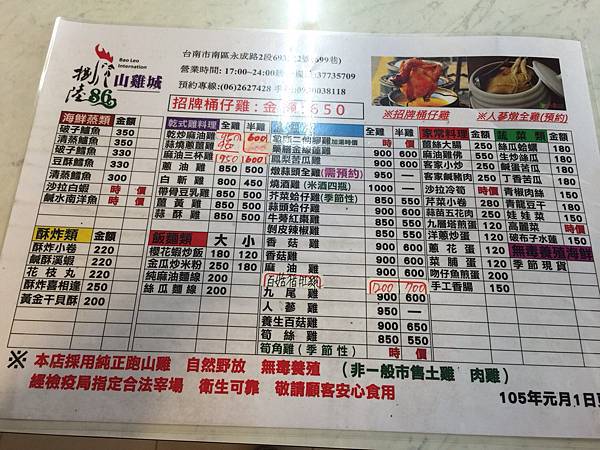 Bao Leo
International
捌陸86 山雞城
台南市南區永成路2段693
營業時間: 17:00~24:00 37735709
預約專線:(06)2627428 0930038118
招牌桶仔雞:金額:650
※招牌桶仔雞
※人蔘燉全雞(預約)
海鮮蒸類 金額
破子鱸魚 350
清蒸鱸魚 350
破子 330
豆酥鱈魚 350
清蒸鱈魚 350
沙拉白蝦 時價
鹹水南洋魚 時價
酥炸類 金額
酥炸小卷 220
鹹酥溪蝦 220
花枝丸 220
酥炸喜相逢 250
黃金干貝酥 200
乾式雞料理 全雞 半雞
乾炒麻油雞 950 600
蒜燒蔥薑雞
麻油三杯雞 950 600
油雞 850 500
白斬雞 800 450
帶骨豆乳雞 850 500
薑黃雞 850 500
蒜酥雞 850 500
飯麵類 大 小
櫻花蝦炒飯 180 120
金瓜炒米粉 250 180
純麻油麵線 200
絲瓜麵線 200
時價
鳳梨苦瓜雞 900 600
燉蒜頭全雞(需預約)
燒酒雞(米酒四瓶) 1000 —
芥菜蛤仔雞(季節性) 850 500
蒜頭蛤仔雞 900 600
牛蒡紅棗雞 900 600
剝皮辣椒雞 900 600
香菇雞 900 600
香菇雞
麻油雞
百菇猪肚雞 1200 700
九尾雞 900 600
人蔘雞 950 —
養生百菇雞 900 650
筍絲雞 900 550
筍角雞(季節性) 時價
家常料理 金額
薑絲大腸 250
麻油雞佛 350
客家小炒 250
客家鹹豬肉 250
沙拉冷筍 時價
芹菜小卷 280
蒜苗五花肉 250
九層塔煎蛋 150
洋蔥炒蛋 150
蔥花蛋 150
菜脯蛋 150
吻仔魚煎蛋 200
手工香腸 150
蔬菜類 金額
絲瓜蛤蠣 180
生炒絲瓜 150
鹹蛋苦瓜 180
丁香苦瓜 180
青椒肉絲 150
青龍豆干 180
娃娃菜 150
高麗菜 時價
破布子水蓮 150
無毒養殖海鮮
季節現貨
※ 本店採用純正跑山雞 自然野放 無毒養殖 (非一般市售土雞 肉雞)
經檢疫局指定合法宰場 衛生可靠 敬請顧客安心食用
105年元月1日